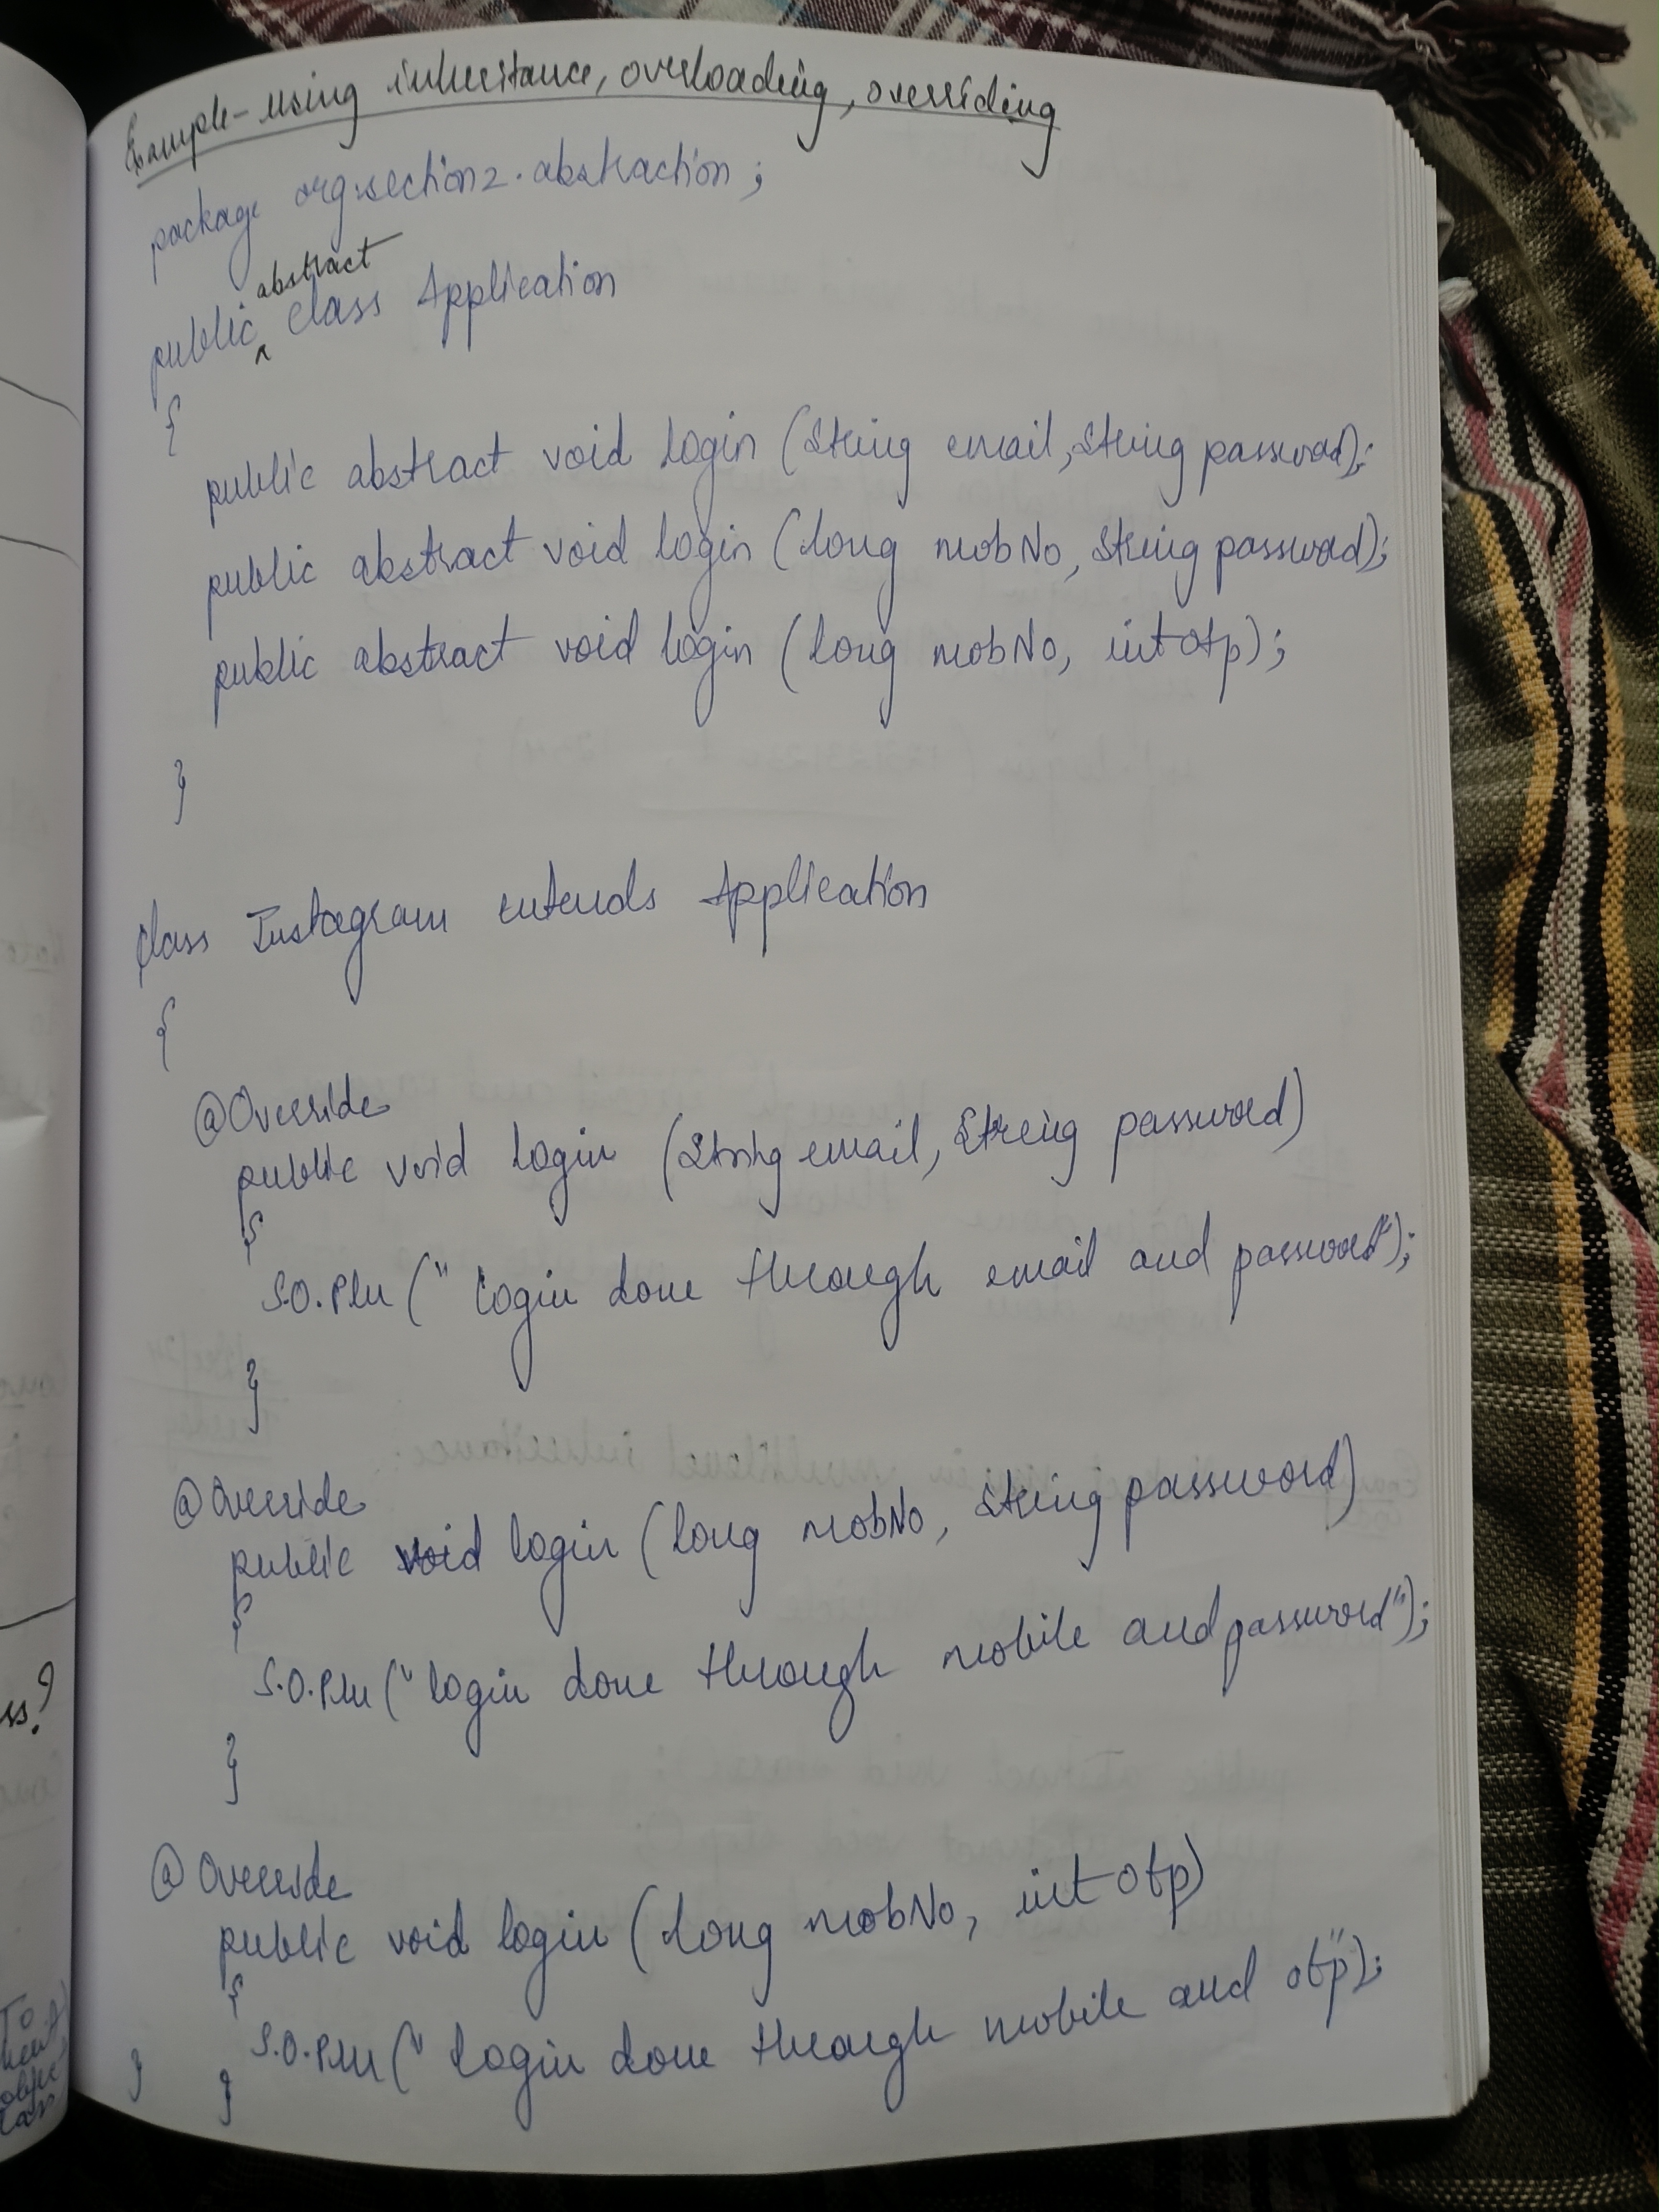 Example - using inheritance, overloading, overriding
package org.section2.abstraction;
public abstract class Application
{
public abstract void login (String email, String password);
public abstract void login (long mobNo, String password);
public abstract void login (long mobNo, int otp);
}
class Instagram extends Application
{
@Override
public void login (String email, String password)
{
S.O.Pln (" login done through email and password");
}
@Override
public void login (long mobNo, String password)
{
S.O.Pln (" login done through mobile and password");
}
@Override
public void login (long mobNo, int otp)
{
S.O.Pln (" login done through mobile and otp");
}
}